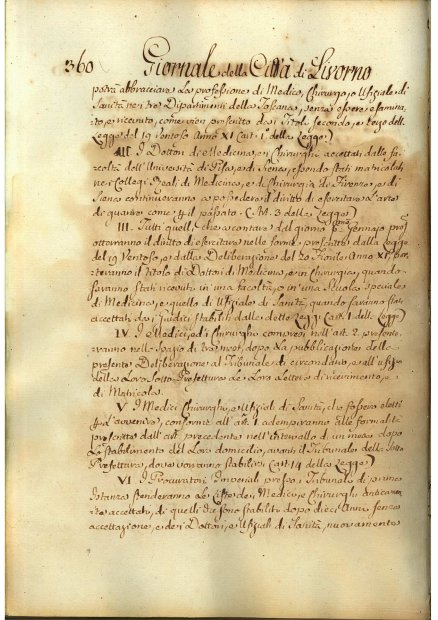 360 Giornale della Città di Livorno
potrà abbracciare la professione di Medico, Chirurgo, o Ufiziale di
Sanità nei tre Dipartimenti della Toscana, senza essere esamina-
to, e ricevuto, come vien prescritto dai Titoli secondo, e terzo della
Legge del 19 Ventoso Anno XI (art. 1 della Legge)
II. I Dottori di Medicina, e i Chirurghi accettati dalle fa-
coltà dell'Università di Pisa, e di Siena, essendo stati matricolati
nei Collegi Reali di Medicina, e di Chirurgia di Firenze, e di
Siena continueranno a possedere il diritto di esercitare l'arte
di guarire come il passato (3 della Legge)
III. Tutti quelli che a contare del giorno Gennajo
otterranno il diritto di esercitare nelle forme prescritte dalla Legge
del 19 Ventoso, e dalla Deliberazione del 20 Anno XI,
teranno il titolo di Dottori di Medicina, o in Chirurgia, quando
saranno stati ricevuti in una facoltà, o in una Scuola speciale
di Medicina, e quello di Ufiziale di Sanità, quando saranno stati
accettati dai Giudici stabiliti dalle dette Leggi (art. 1 della Legge)
IV. I Medici, e i Chirurghi compresi nell'art. 2. presente-
ranno nello spazio di tre mesi, dopo la pubblicazione della
presente Deliberazione al Tribunale di circondario, e all'ufizio
della Loro Sotto Prefettura le Loro Lettere di ricevimento, e
di Matricola.
V. I Medici Chirurghi, e Ufiziali di Sanità, che fossero eletti
l'avvenire, conforme all'art. 1 adempiranno alle formalità
prescritte dall'art. precedente nell'intervallo di un mese dopo
lo stabilimento del Loro domicilio, avanti il Tribunale, e la Sotto
Prefettura, dove vorranno stabilirsi (art. 14 della Legge)
VI. I Procuratori Imperiali presso i Tribunali di prima
Istanza stenderanno le Liste dei Medici, e Chirurghi anticamen-
te accettati, di quelli che sono stabiliti dopo dieci Anni senza
accettazione, e dei Dottori, e Ufiziali di Sanità, nuovamente